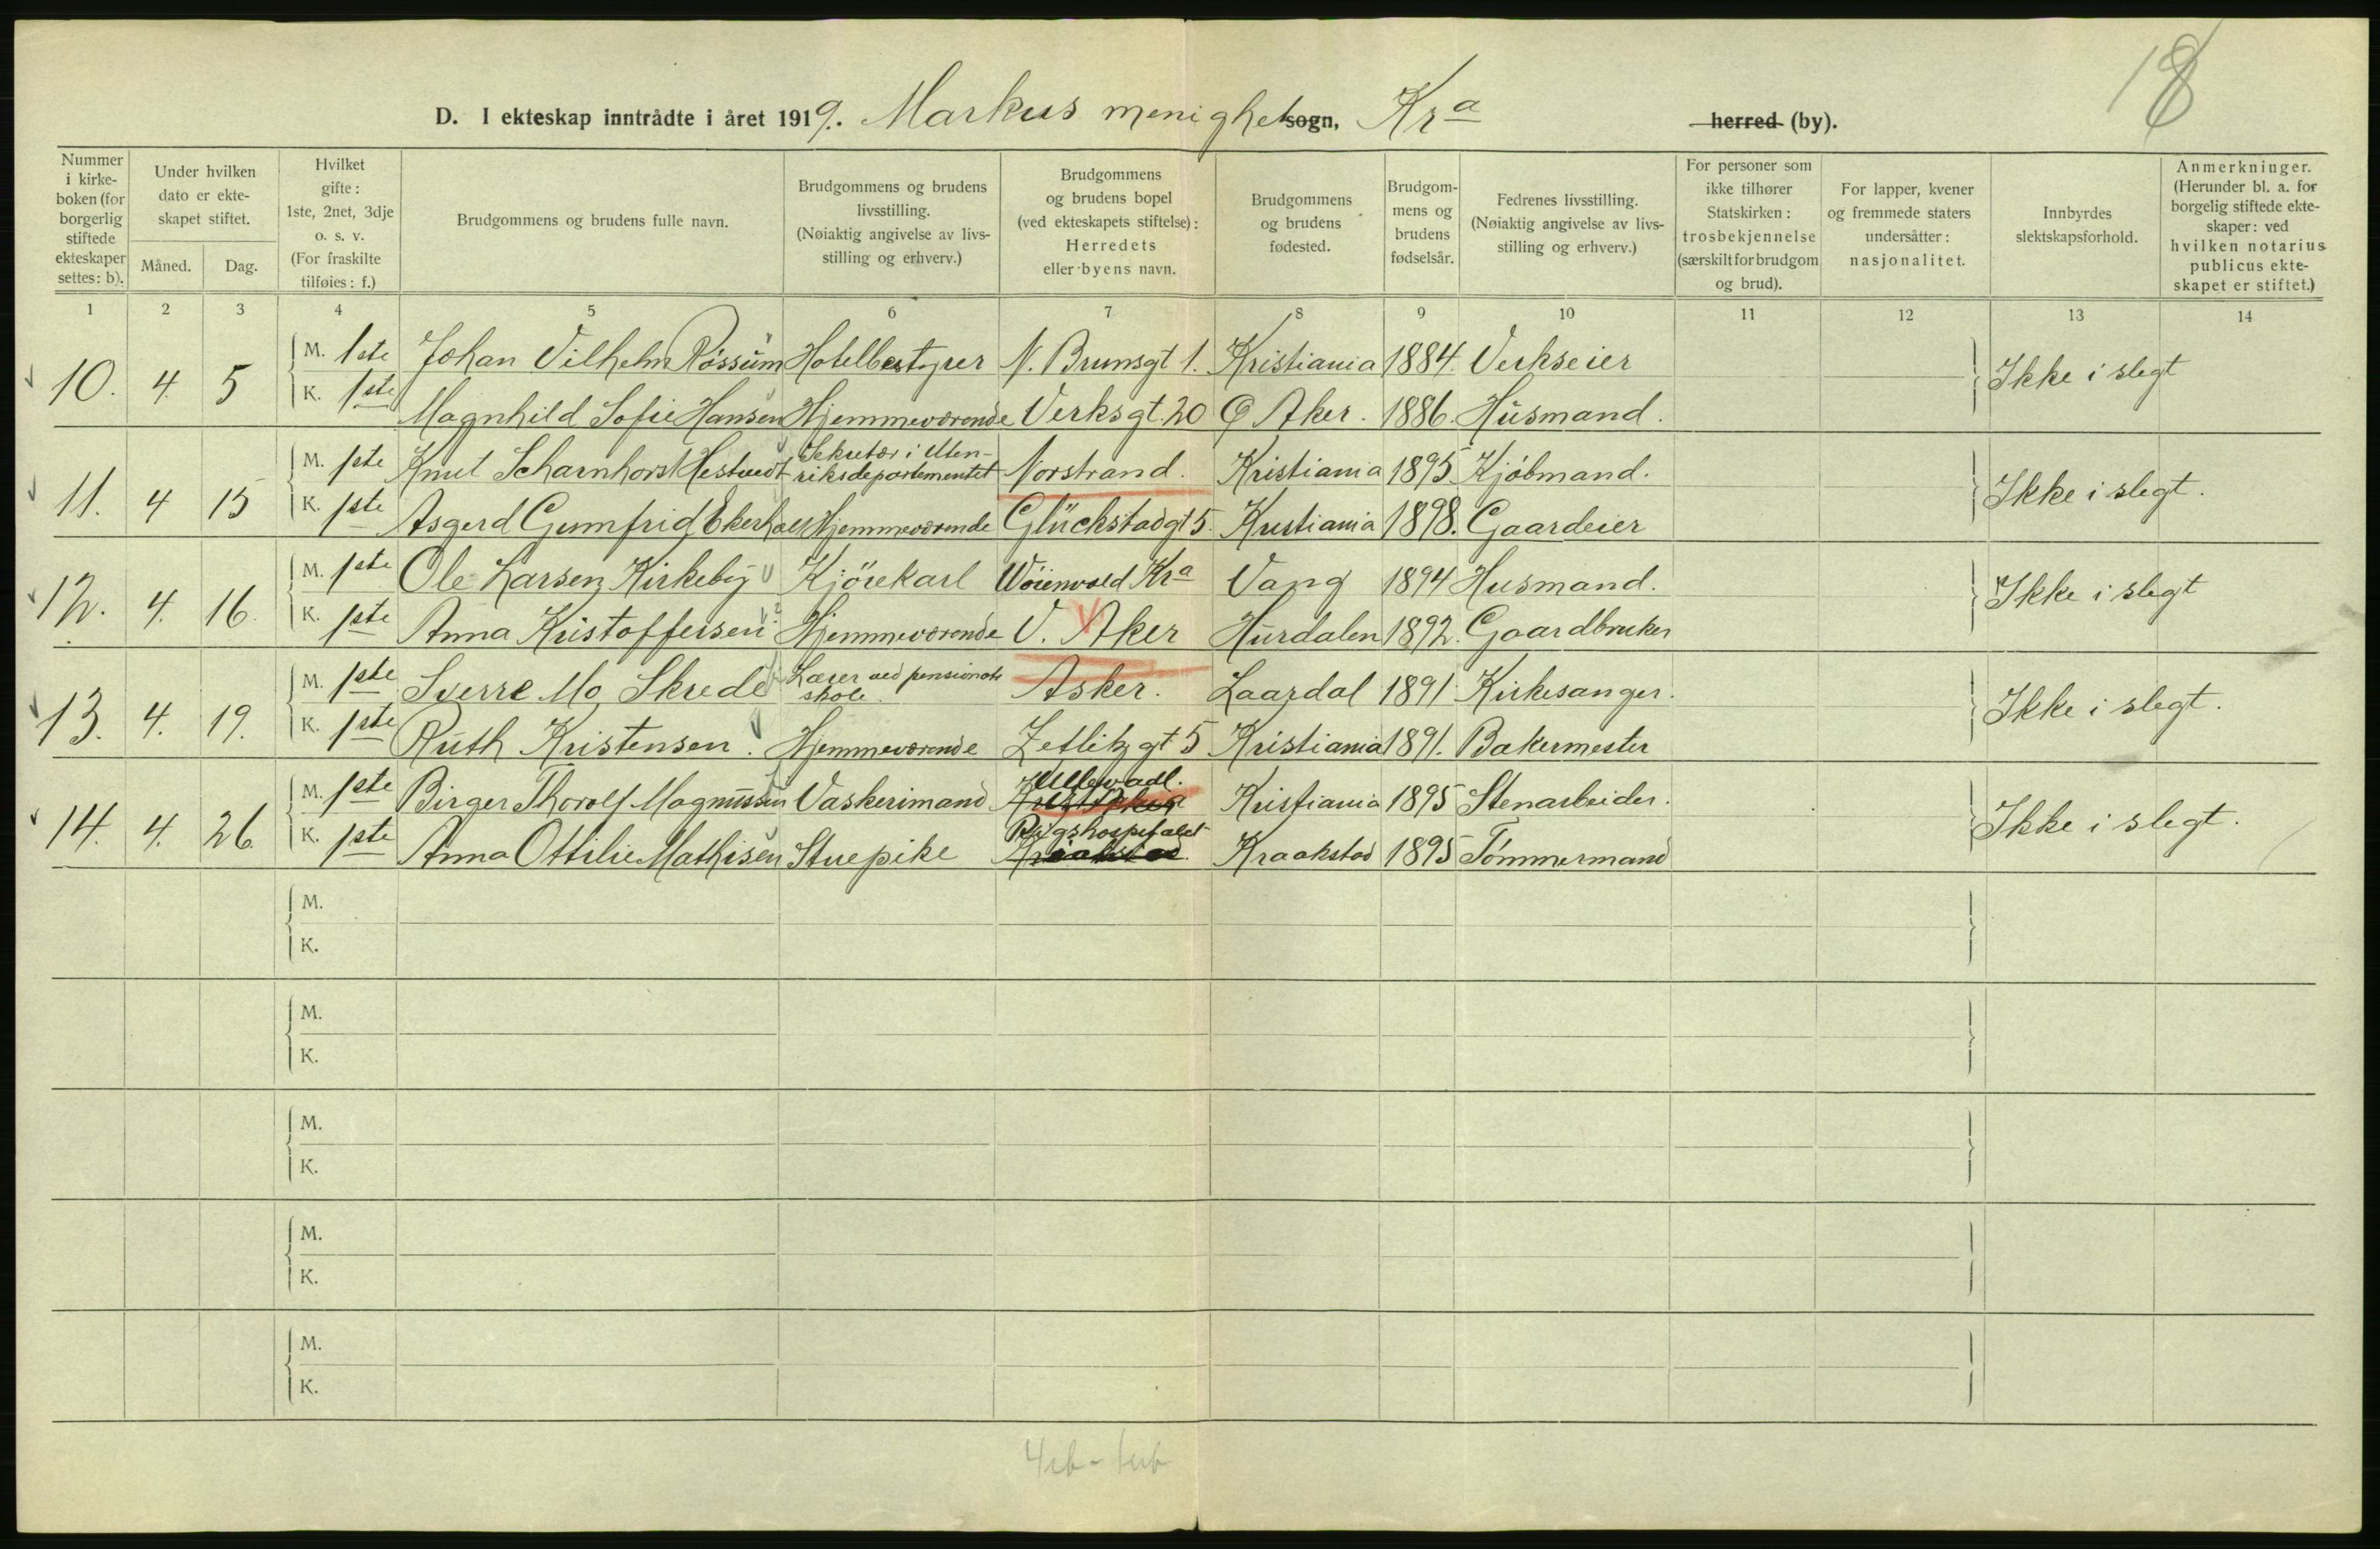 18
D. I ekteskap inntrådte i året 1919. Markus menighet sogn, Kra herred (by).
Nummer i kirkeboken (for borgerlig stiftede ekteskaper settes: b).
Under hvilken dato er ekteskapet stiftet.
Måned. Dag.
Hvilket gifte: 1ste, 2net, 3dje o. s. v. (For fraskilte tilføies: f.)
Brudgommens og brudens fulle navn.
Brudgommens og brudens livsstilling. (Nøiaktig angivelse av livsstilling og erhverv.)
Brudgommens og brudens bopel (ved ekteskapets stiftelse): Herredets eller byens navn.
Brudgommens og brudens fødested.
Brudgommens og brudens fødselsår.
Fedrenes livsstilling. (Nøiaktig angivelse av livsstilling og erhverv.)
For personer som ikke tilhører Statskirken: trosbekjennelse (særskilt for brudgom og brud).
For lapper, kvener og fremmede staters undersåtter: nasjonalitet.
Innbyrdes slektskapsforhold.
Anmerkninger. (Herunder bl. a. for borgelig stiftede ekteskaper: ved hvilken notarius publicus ekteskapet er stiftet.)
1 2 3 4 5 6 7 8 9 10 11 12 13 14
10. 4. 5 M. 1ste Johan Vilhelm Røssum Hotelbestyrer N. Brunsgt 1. Kristiania 1884. Verkseier Ikke i slegt
K. 1ste Magnhild Sofie Hansen Hjemmeværende Verksgt. 20 Ø Aker. 1886. Husmand.
11. 4 15 M. 1ste Knut Scharnhorst Hestvedt Sekretær i Utenriksdepartementet Norstrand. Kristiania 1895 Kjøbmand. Ikke i slegt.
K. 1ste Asgerd Gumfrid Hjemmeværende Glückstadgt 5. Kristiania 1898. Gaardeier
12. 4. 16. M. 1ste Ole Larsen Kirkeby Kjørekarl Wøienvold Kra Vang 1894 Husmand. Ikke i slegt
K. 1ste Anna Kristoffersen Hjemmeværende V. Aker Hurdalen 1892. Gaardbruker
13. 4. 19. M. 1ste Sverre Mo Skrede Lærer ved pensionats skole. Asker. Laardal 1891 Kirkesanger. Ikke i slegt.
K. 1ste Ruth Kristensen. Hjemmeværende Zetlitz gt 5 Kristiania 1891. Bakermester
14. 4. 26. M. 1ste Birger Thorolf Magnussen Vaskerimand Ullevaal. Kristiania 1895 Stenarbeider. Ikke i slegt.
K. 1ste Anna Ottilie Mathisen Stuepike Rigshospitalet Kraakstad Kraakstad 1895 Tømmermand
M.
K.
M.
K.
M.
K.
M.
K.
M.
K.